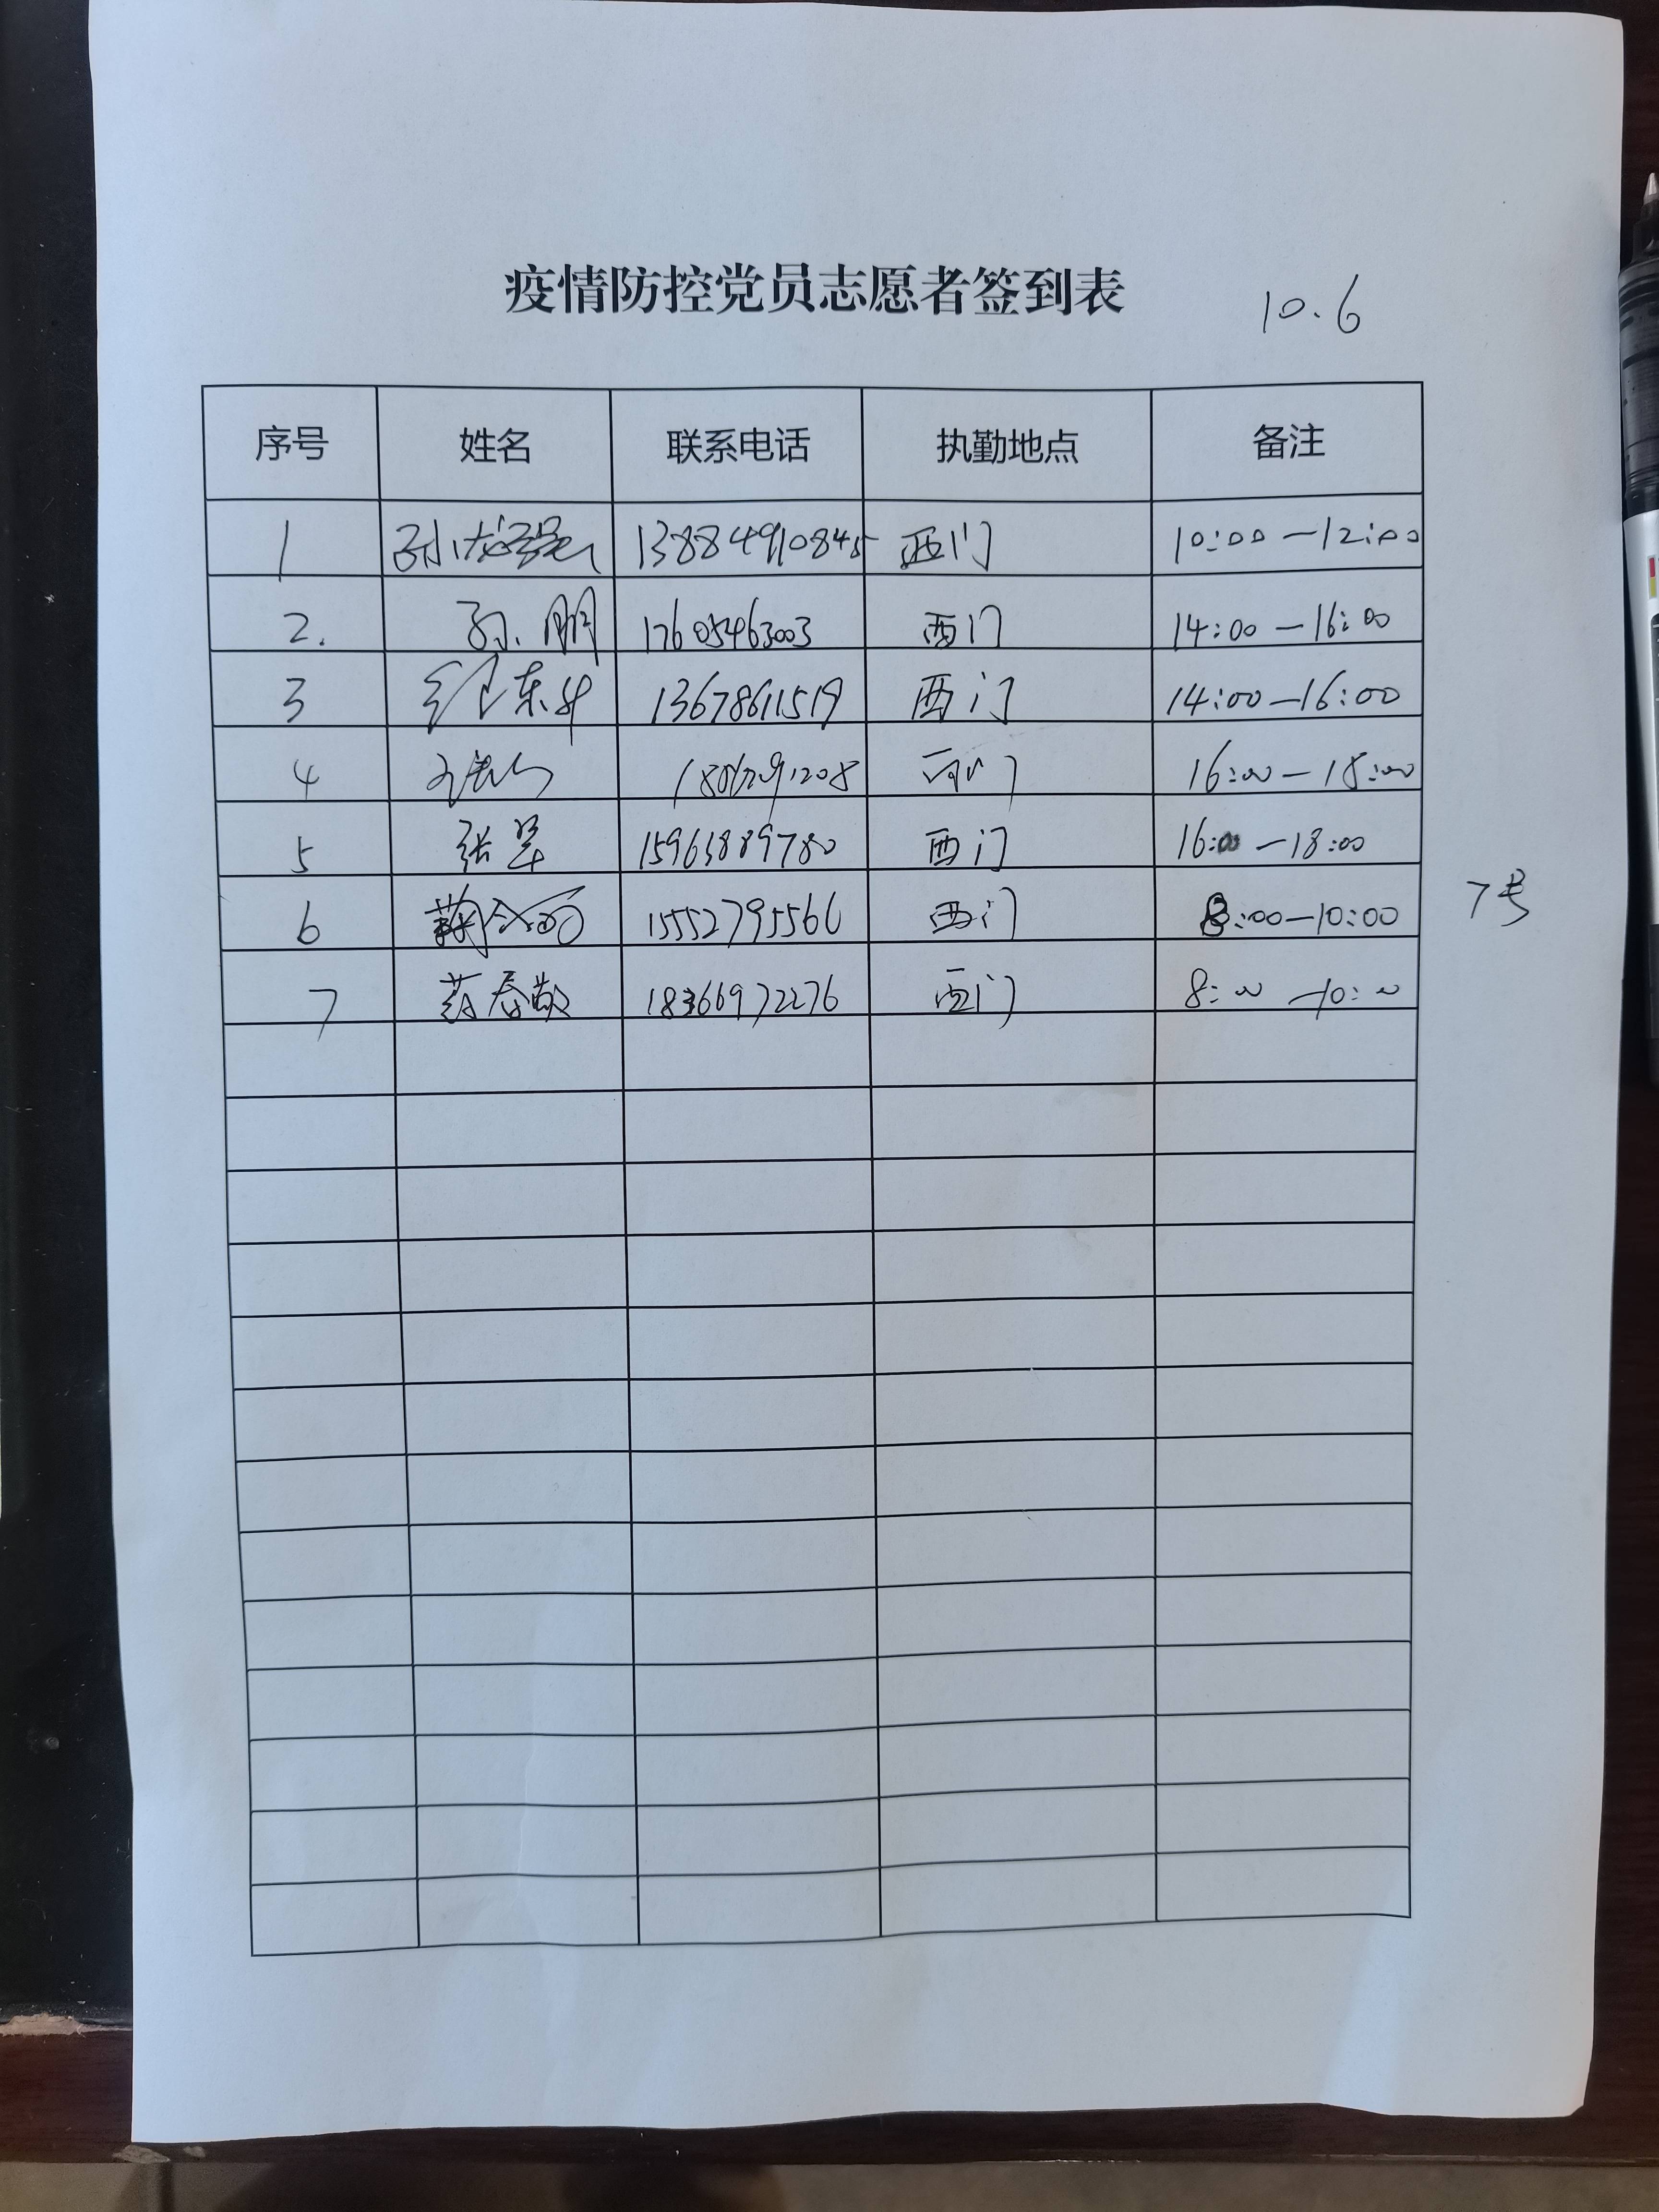 疫情防控党员志愿者签到表 10.6
序号 姓名 联系电话 执勤地点 备注
1 13884910845 西门 10:00—12:00
2. 孙朋 17605463003 西门 14:00—16:00
3 东华 13678611519 西门 14:00—16:00
4 西门 16:00—18:00
5 张翠 15963889780 西门 16:00—18:00
6 15552795566 西门 8:00—10:00 7号
7 18366972276 西门 8:00—10:00